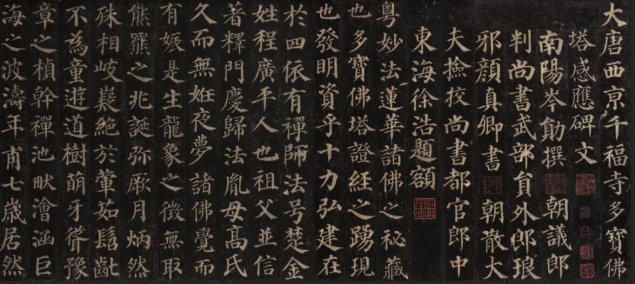 大唐西京千福寺多寶佛
塔感應碑文
南陽岑勛撰 朝議郎
判尚書武部員外郎琅
邪顏真卿書 朝散大
夫撿校尚書都官郎中
東海徐浩題額
粵妙法蓮華諸佛之秘藏
也多寶佛塔證經之踴現
也發明資乎十力弘建在
於四依有禪師法号楚金
姓程廣平人也祖父並信
著釋門慶歸法胤母高氏
久而無姙夜夢諸佛覺而
有娠是生龍象之徵無取
熊羆之兆誕弥厥月炳然
殊相岐嶷絕於葷茹髫齔
不為童遊道樹萌牙聳豫
章之楨幹禪池畎澮涵巨
海之波濤年甫七歲居然